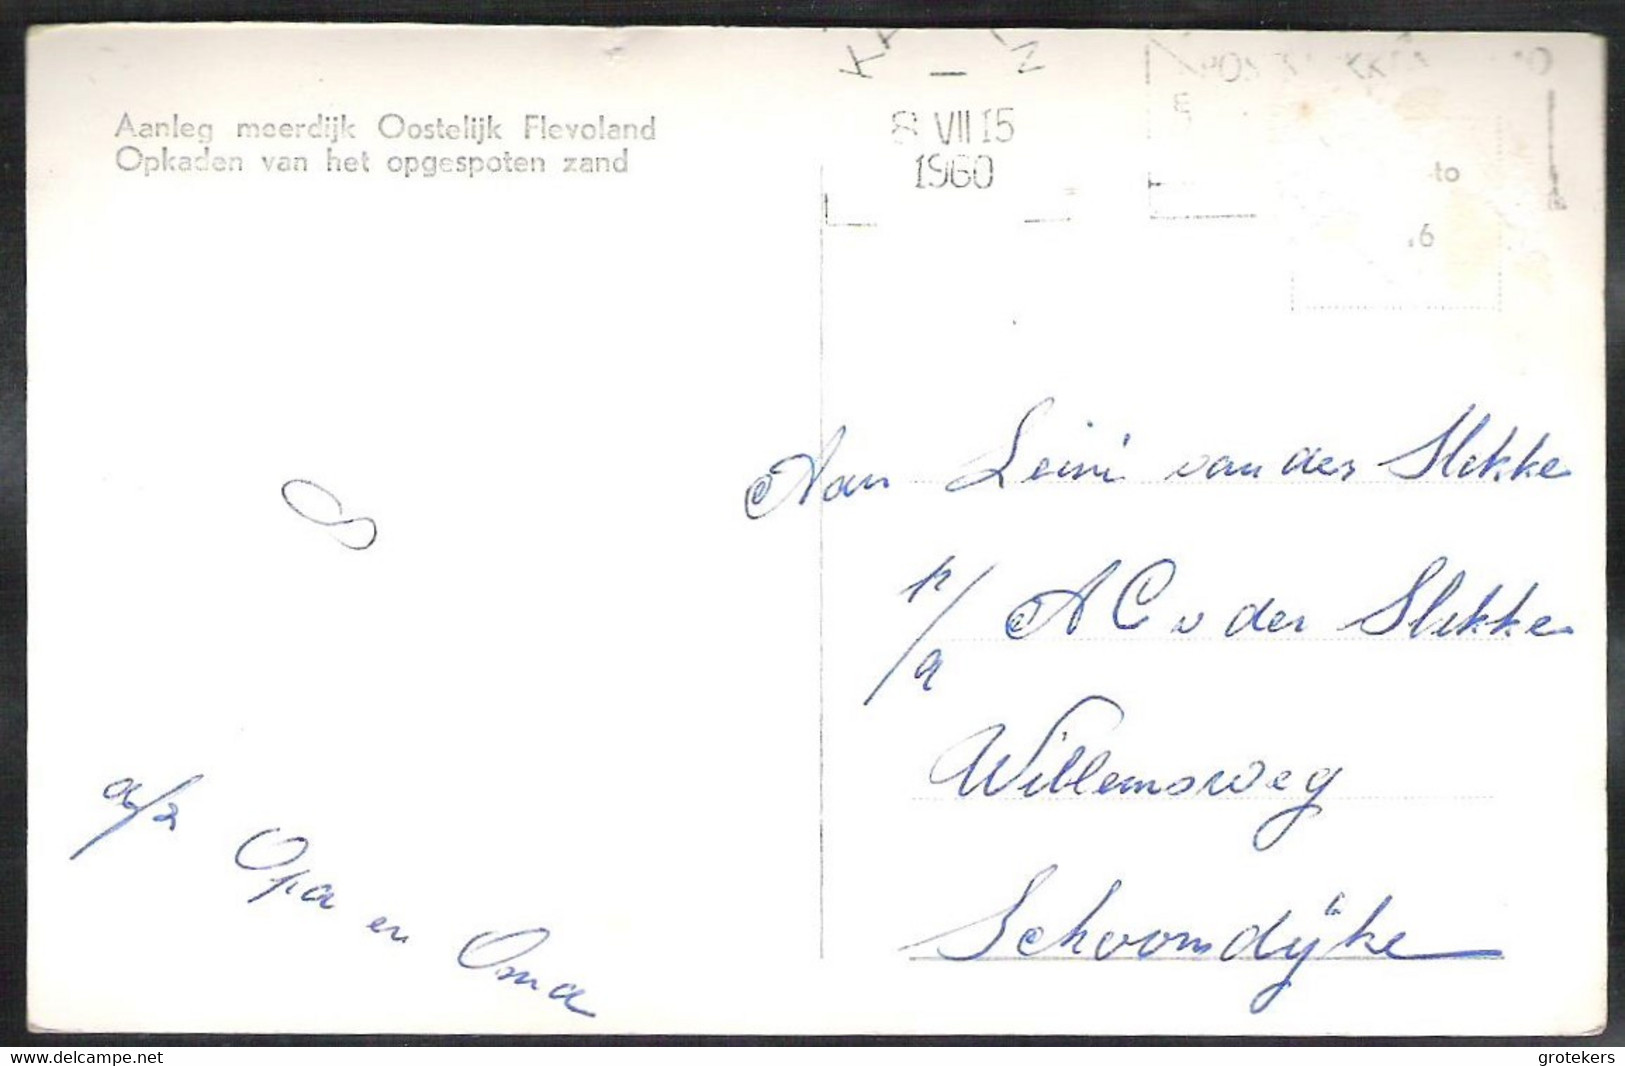 Aanleg meerdijk Oostelijk Flevoland
Opkaden van het opgespoten zand
8 VII 15
1960
to
6
Aan Leini van der Slikke
p/a A C v der Slikke
Willemsweg
Schoondijke
a/z Opa en Oma
www.delcampe.net
grotekers